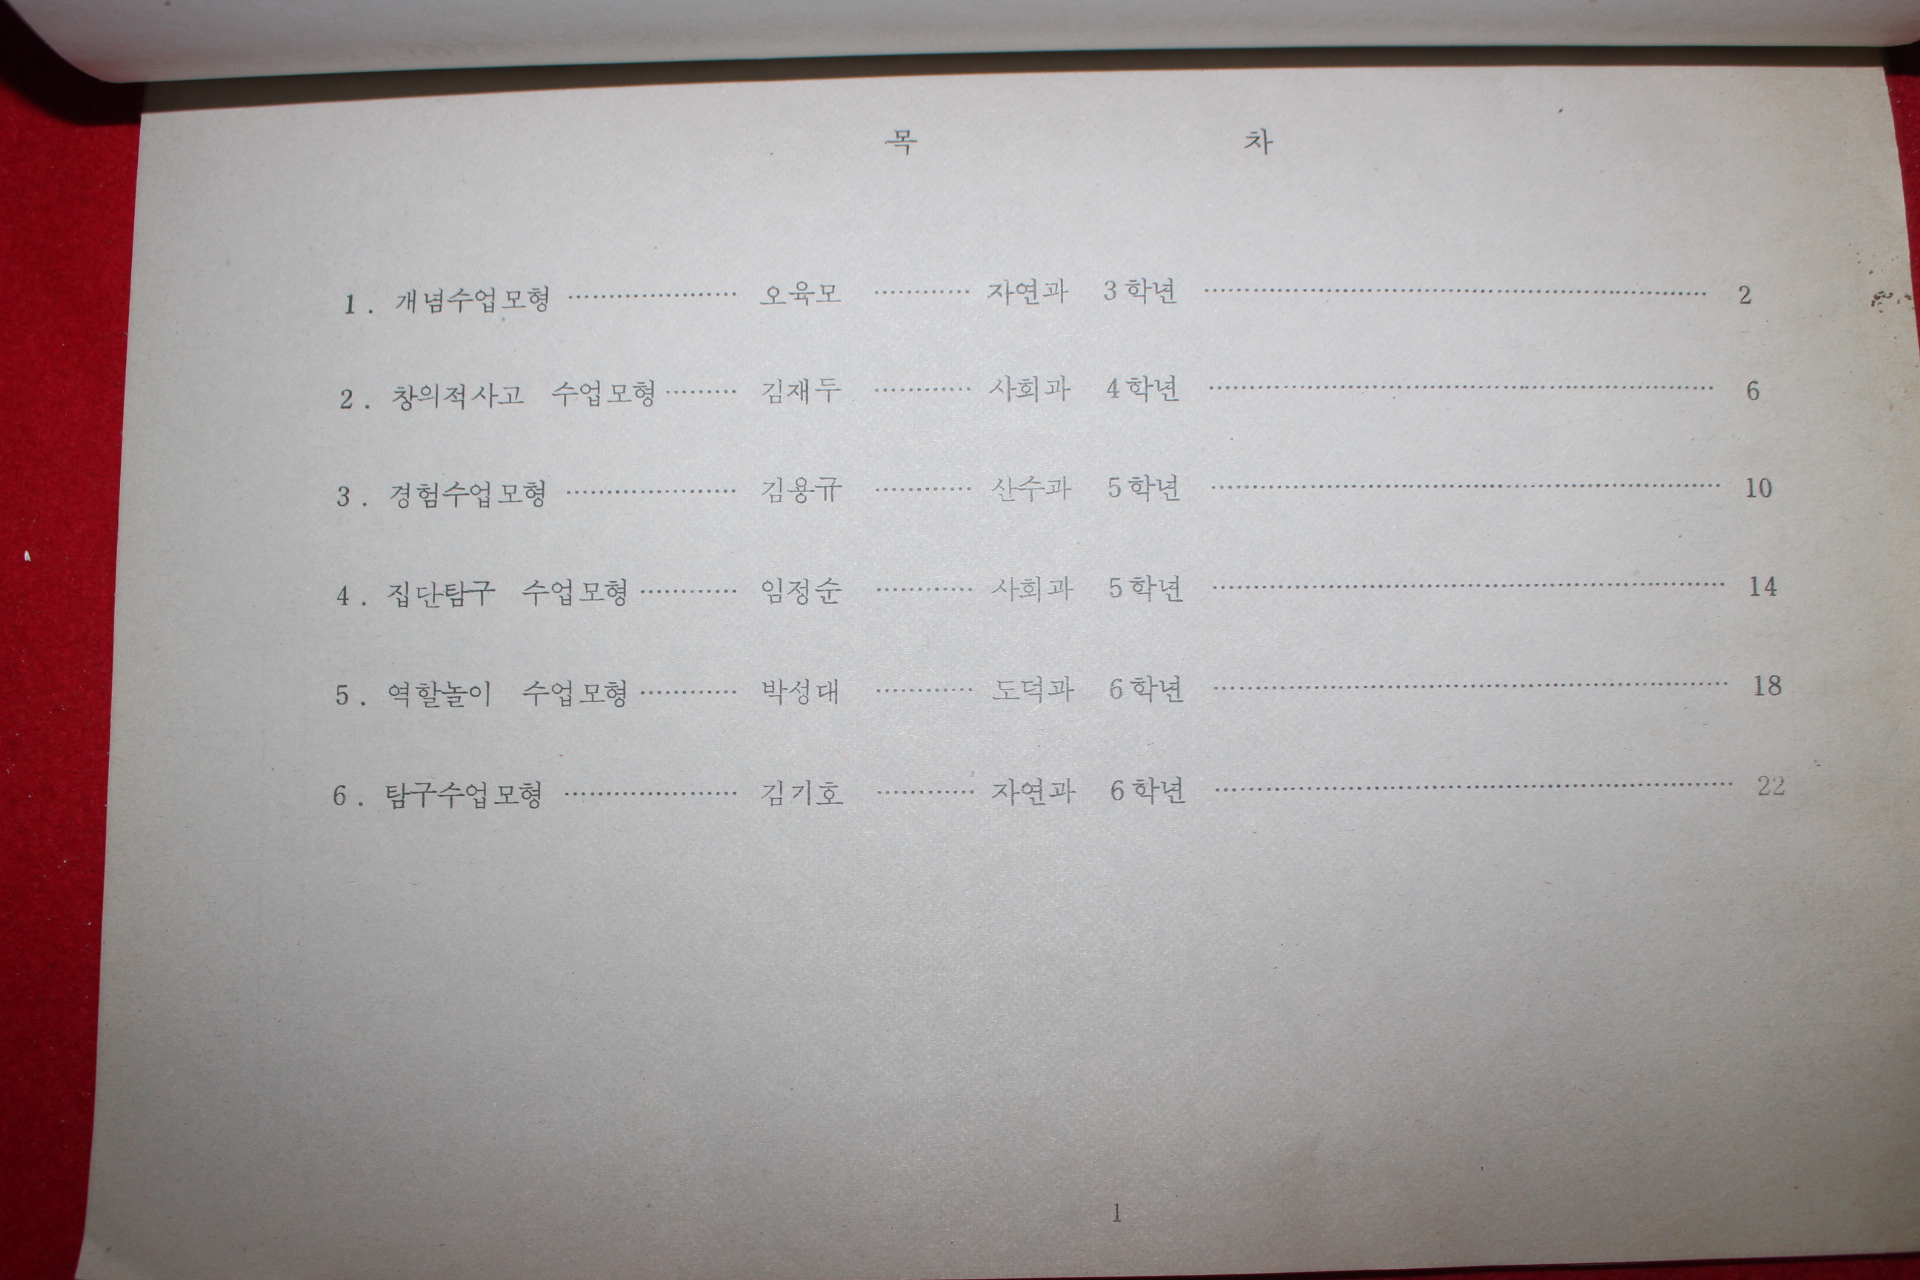 목 차
1. 개념수업모형 ………………… 오육모 ………… 자연과 3학년 ……………………………………………………… 2
2. 창의적사고 수업모형 ……… 김재두 ………… 사회과 4학년 ……………………………………………………… 6
3. 경험수업모형 ………………… 김용규 ………… 산수과 5학년 ……………………………………………………… 10
4. 집단탐구 수업모형 ………… 임정순 ………… 사회과 5학년 ……………………………………………………… 14
5. 역할놀이 수업모형 ………… 박성대 ………… 도덕과 6학년 ……………………………………………………… 18
6. 탐구수업모형 ………………… 김기호 ………… 자연과 6학년 ……………………………………………………… 22
1